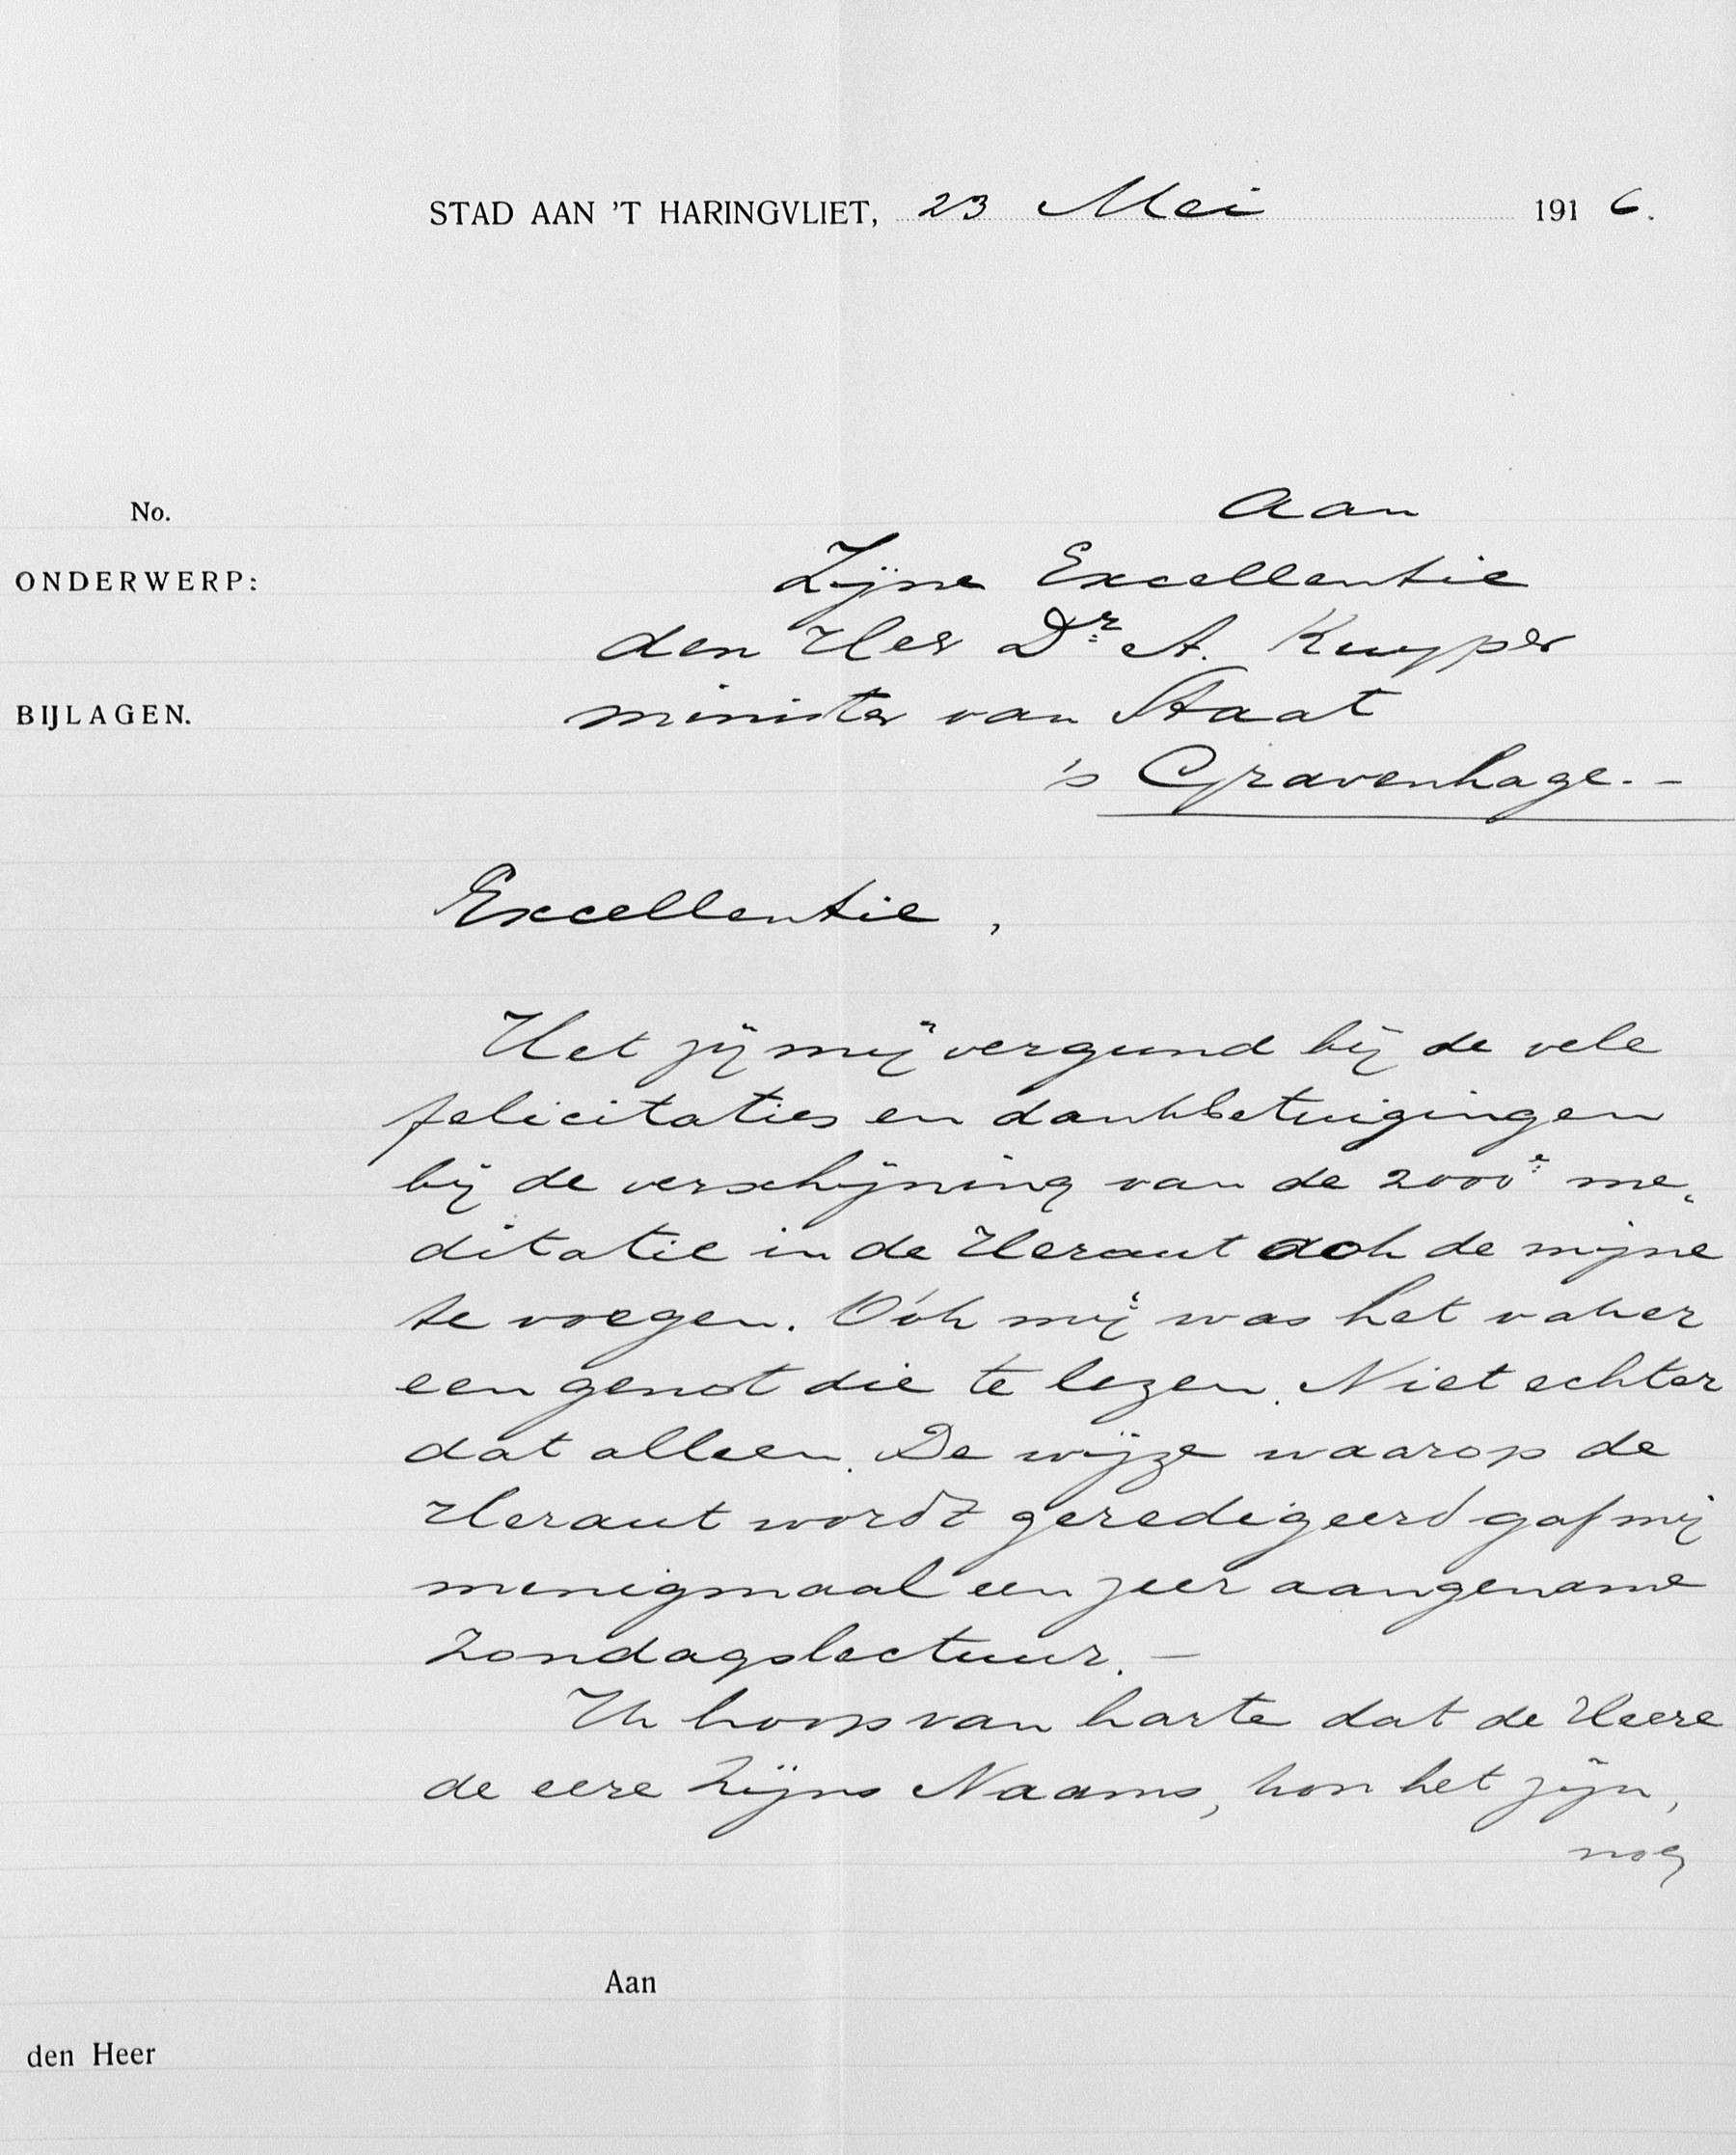 STAD AAN 'T HARINGVLIET, 23 Mei 1916.
No.
ONDERWERP:
BIJLAGEN.
Aan
Zijne Excellentie
den Heer Dr. A. Kuyper
minister van Staat
's Gravenhage. -
Excellentie,
Het zij mij vergund bij de vele
felicitaties en dankbetuigingen
bij de verschijning van de 2000e me-
ditatie in de Heraut ook de mijne
te voegen. Óók mij was het vaker
een genot die te lezen. Niet echter
dat alleen. De wijze waarop de
Heraut wordt geredigeerd gaf mij
menigmaal een zeer aangename
Zondagslectuur. -
Ik hoop van harte dat de Heere
de eere Zijns Naams, kon het zijn,
nog
Aan
den Heer